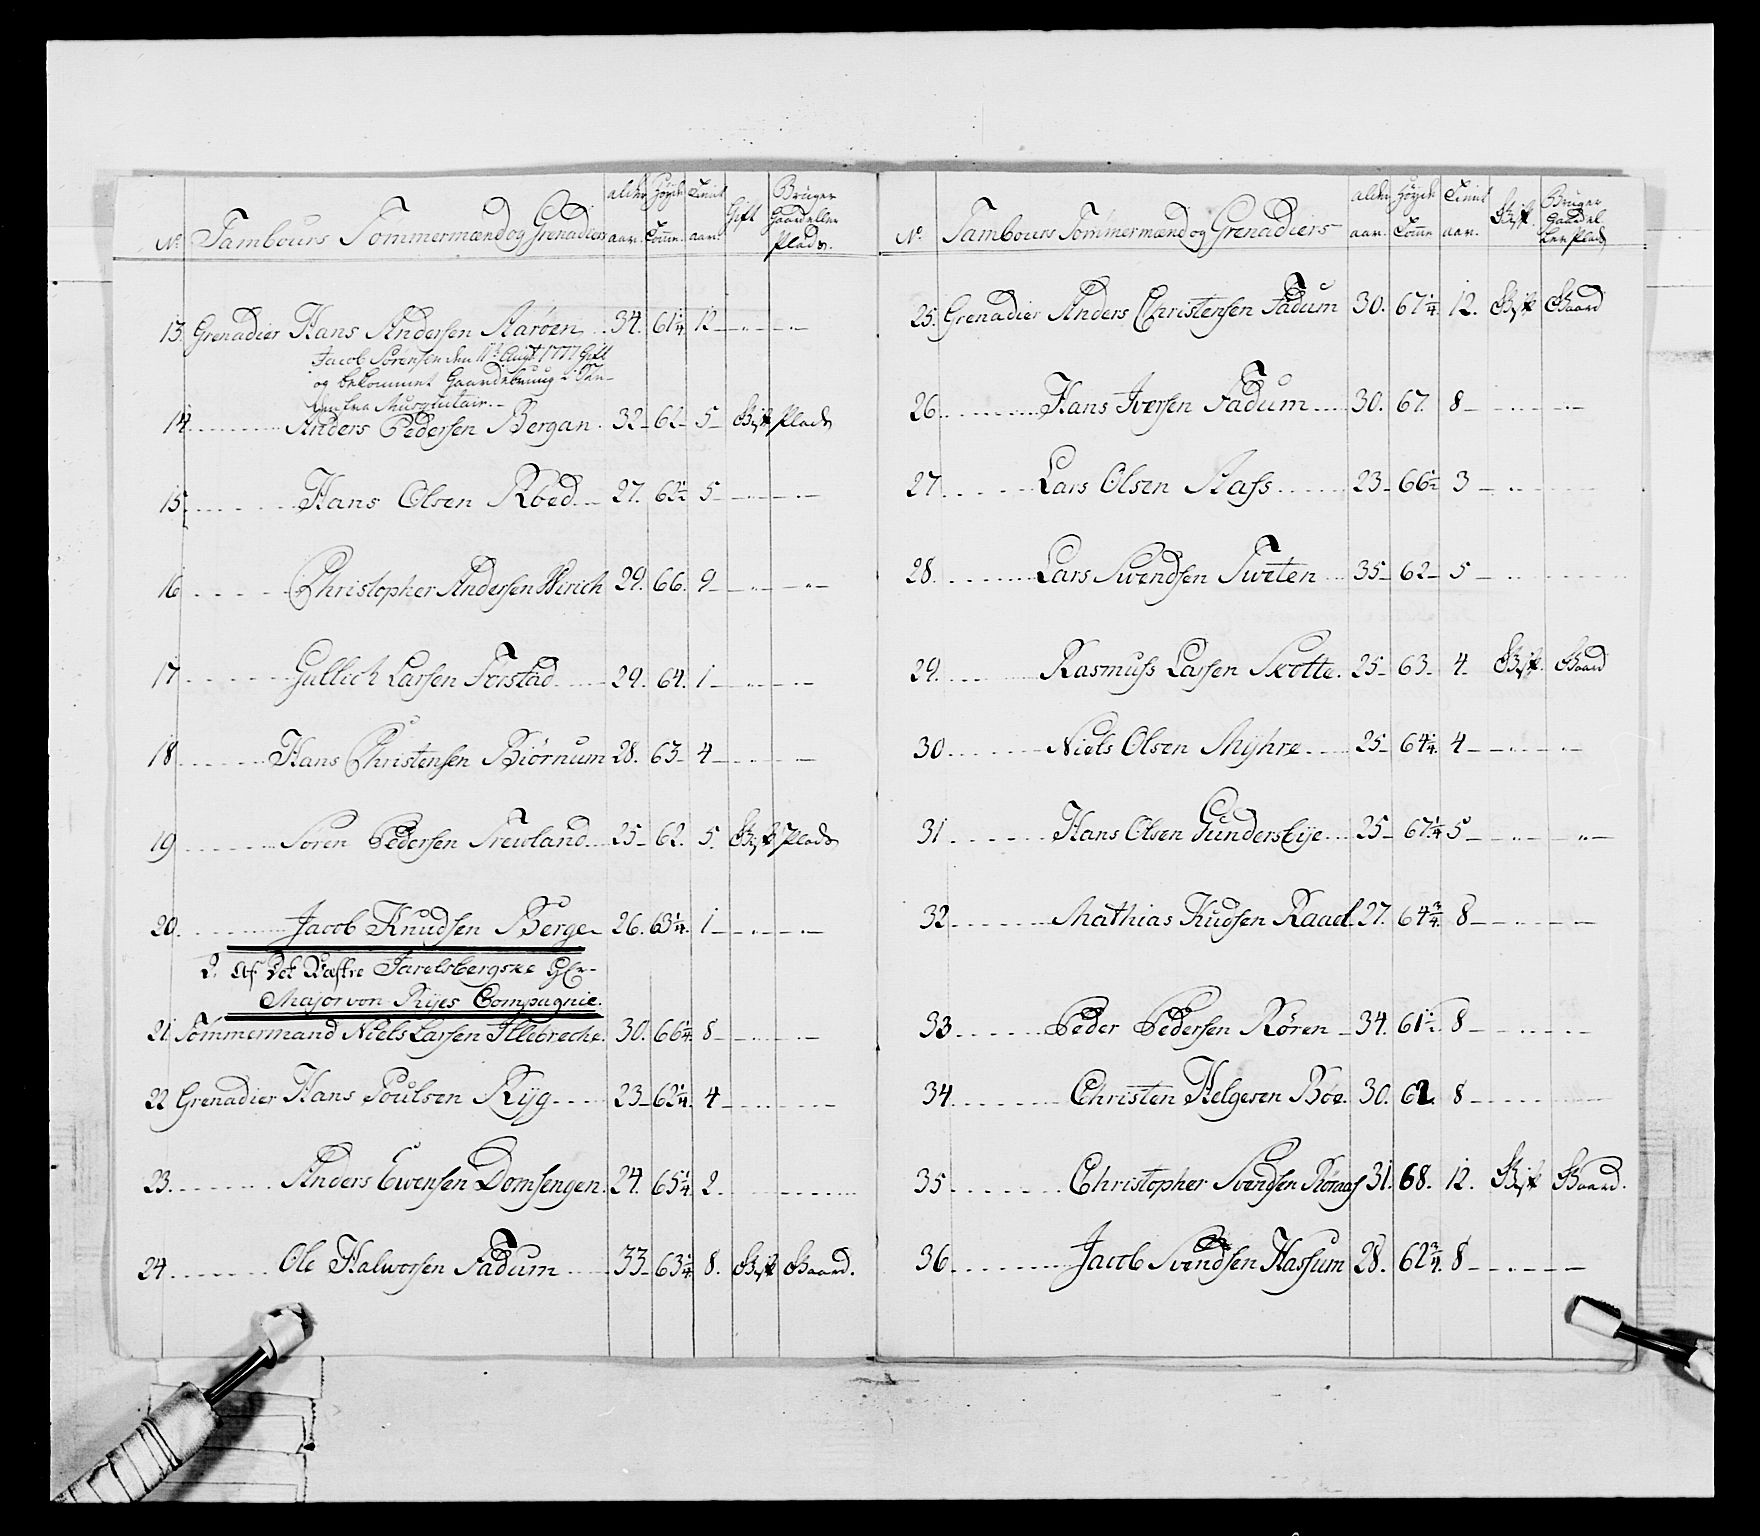 No. Tambours Tömmermænd og Grenadiers alder aar. Höyde Tomr. Tient aar. Gift Bruger Gaard eller Plads.
13. Grenadier Hans Andersen Aaröen 34. 61¼ 12 — „ — „ —
Jacob Sörensen den 11te Augt 1777 Gift
og bekommet Gaardebrug i
fra Musquetair. —
14 Anders Pedersen Bergan. 32 62 5 Gift Plads
15. Hans Olsen Röed 27. 62½ 5 — „ — „ —
16 Christopher Andersen Wirich 29. 66. 9 — „ — „ —
17 Gullich Larsen Torstad 29. 64. 1 — „ — „ —
18 Hans Christensen Biörnum 28. 63 4 — „ — „ —
19 Sören Pedersen Trewland 25 62. 5. Gift Plads
20. Jacob Knudsen Berge 26. 63¼. 1 — „ — „ —
2. Af Det Westre Jarelsbergske Gr-
Major von Rÿes Compagnie.
21 Tömmermand Niels Larsen Illebreche. 30. 66¼. 8 — „ — „ —
22 Grenadier Hans Poulsen Rÿg 23 62¼. 4
23. Anders Ewensen Domsengen. 24. 65¼ 2.
24 Ole Halworsen Fadum 33 63¼ 8. Gift Gaard.
No. Tambours Tömmermænd og Grenadiers alder aar. Höyde Tomr. Tient aar. Gift. Bruger Gaard eller Plads
25. Grenadier Anders Christensen Fadum 30. 67¼. 12. Gift Gaard
26 Hans Iversen Fadum 30. 67. 8 — „ — „ —
27 Lars Olsen Aass 23 66½ 3 — „ —
28. Lars Svendsen Tveten 35 62 5 — „ —
29. Rasmuss Larsen Skotte. 25 63. 4. Gift. Gaard
30 Niels Olsen Mÿhre 25 64¼. 4 — „ — „ —
31 Hans Olsen Gunderseije 25 67¼ 5 — „ — „ —
32 Mathias Kudsen Raael 27. 64¾ 8 — „ — „ —
33 Peder Pedersen Rören 34. 61½. 8 — „ — „ —
34 Christen Helgesen Böe. 30. 62. 8
35 Christopher Svendsen Röraas 31. 68. 12. Gift Gaard.
36 Jacob Svendsen Hassum 28. 62¾. 8 — „ — „ —